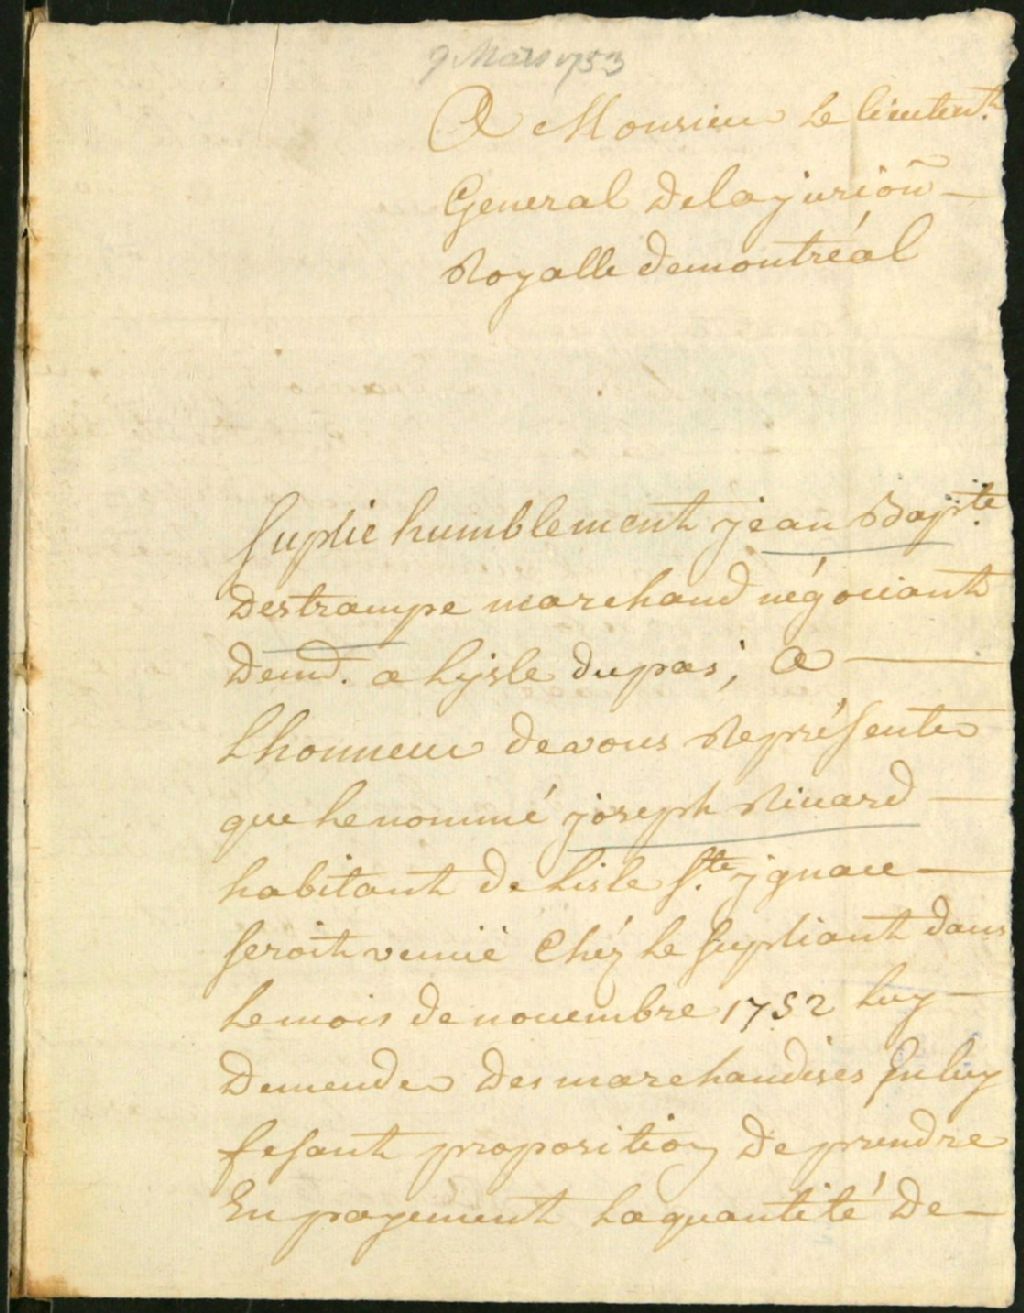 9 Mars 1753
A Monsieur Le lieuten.t
General De la jurion̄ —
Royalle de montréal
Suplie humblement jean Bap.te
Destrampe marchand négotiant
Dem.d. a Lysle dupas, A —
Lhonneur de vous Représenter
que Le nommé joseph Rivard —
habitant de Lisle S.te jgnace —
Seroit venüe Chéz Le Supliant dans
Le mois de novembre 1752 luy —
Demender Des marchandises En luy
fesant proposition De prendre
En payement La quantité De —